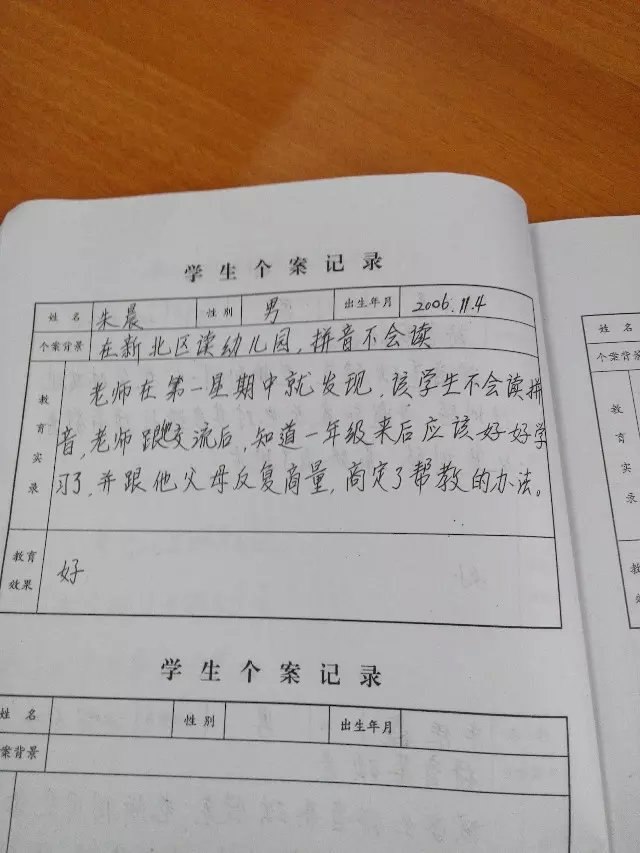 学生个案记录
姓名 朱晨 性别 男 出生年月 2006.11.4
个案背景 在新北区读幼儿园，拼音不会读
教育实录 老师在第一星期中就发现，该学生不会读拼
音，老师跟他交流后，知道一年级来后应该好好学
习了，并跟他父母反复商量，商定了帮教的办法。
教育效果 好
学生个案记录
姓名 性别 出生年月
案背景
姓名
个案背景
教育实录